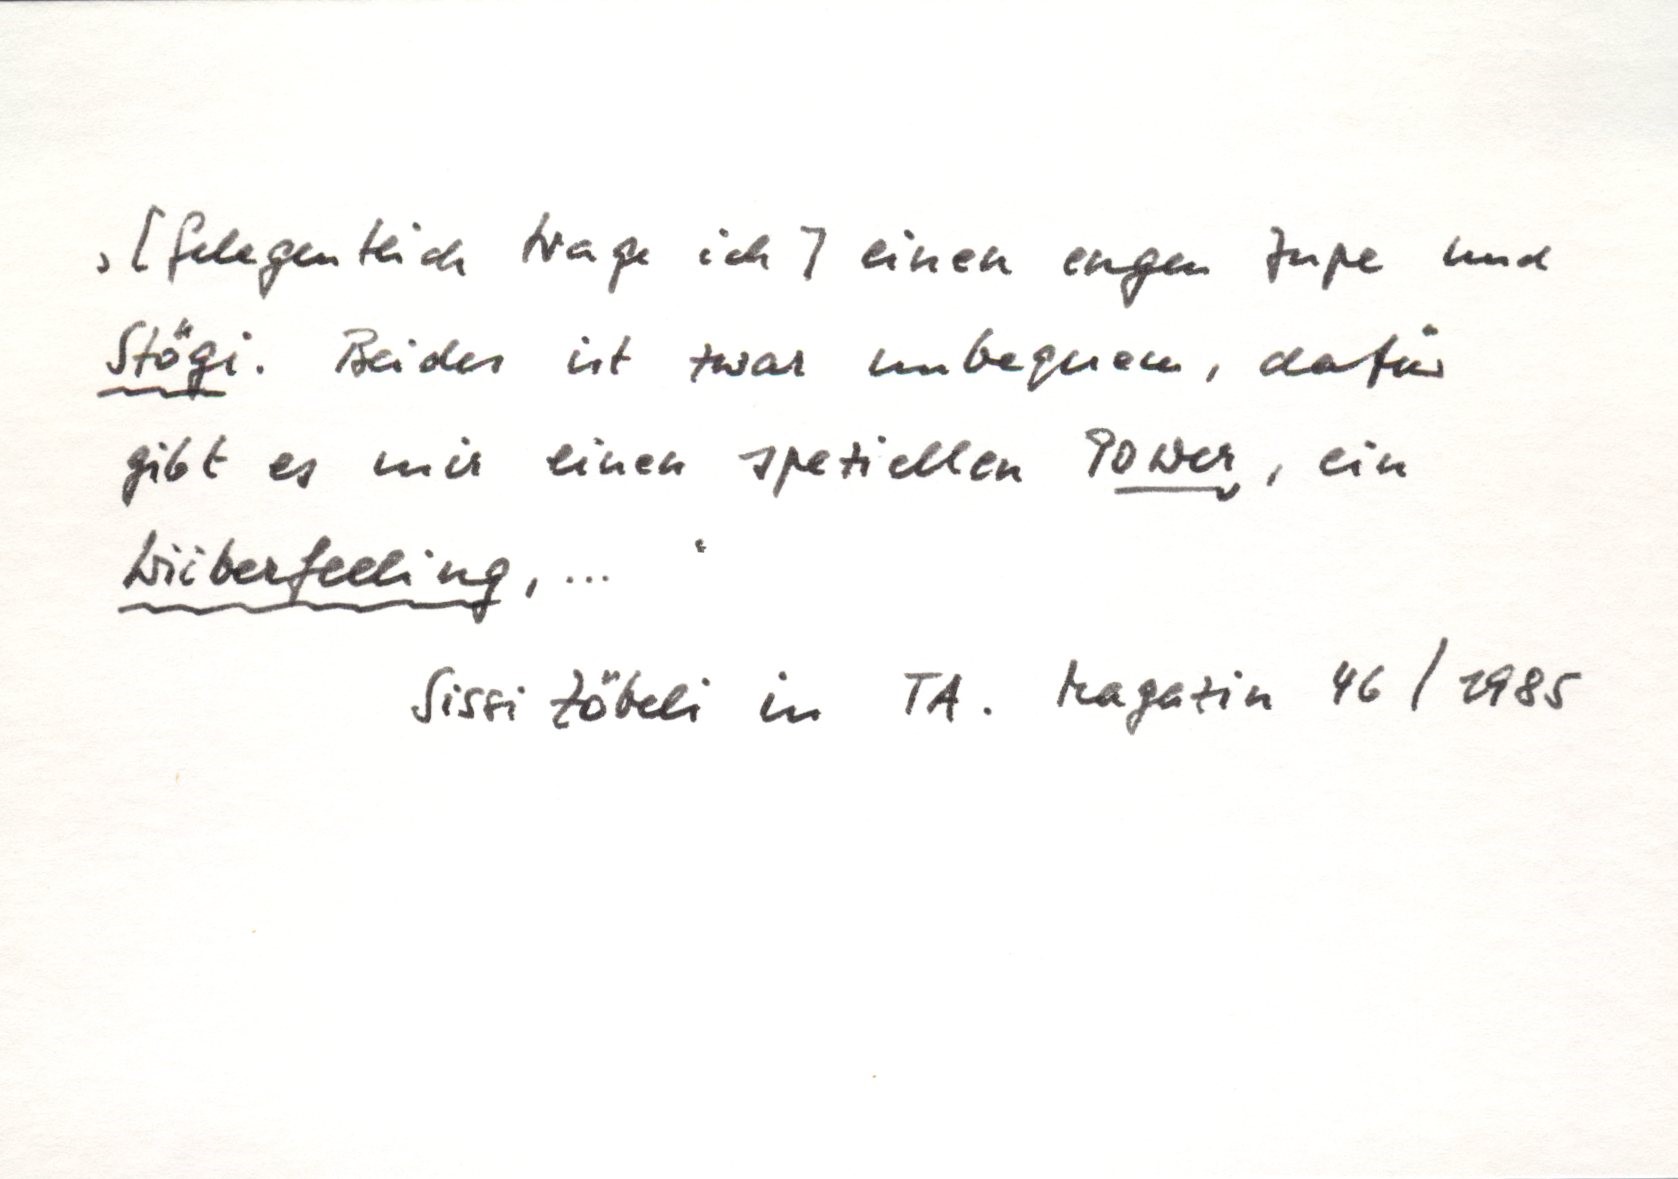 ‚[Gelegentlich trage ich] einen engen Jupe und
Stögi. Beides ist zwar unbequem, dafür
gibt es mir einen speziellen Power, ein
Wiiberfeeling, ... ‘
Sissi Zöbeli in TA. Magazin 46/1985